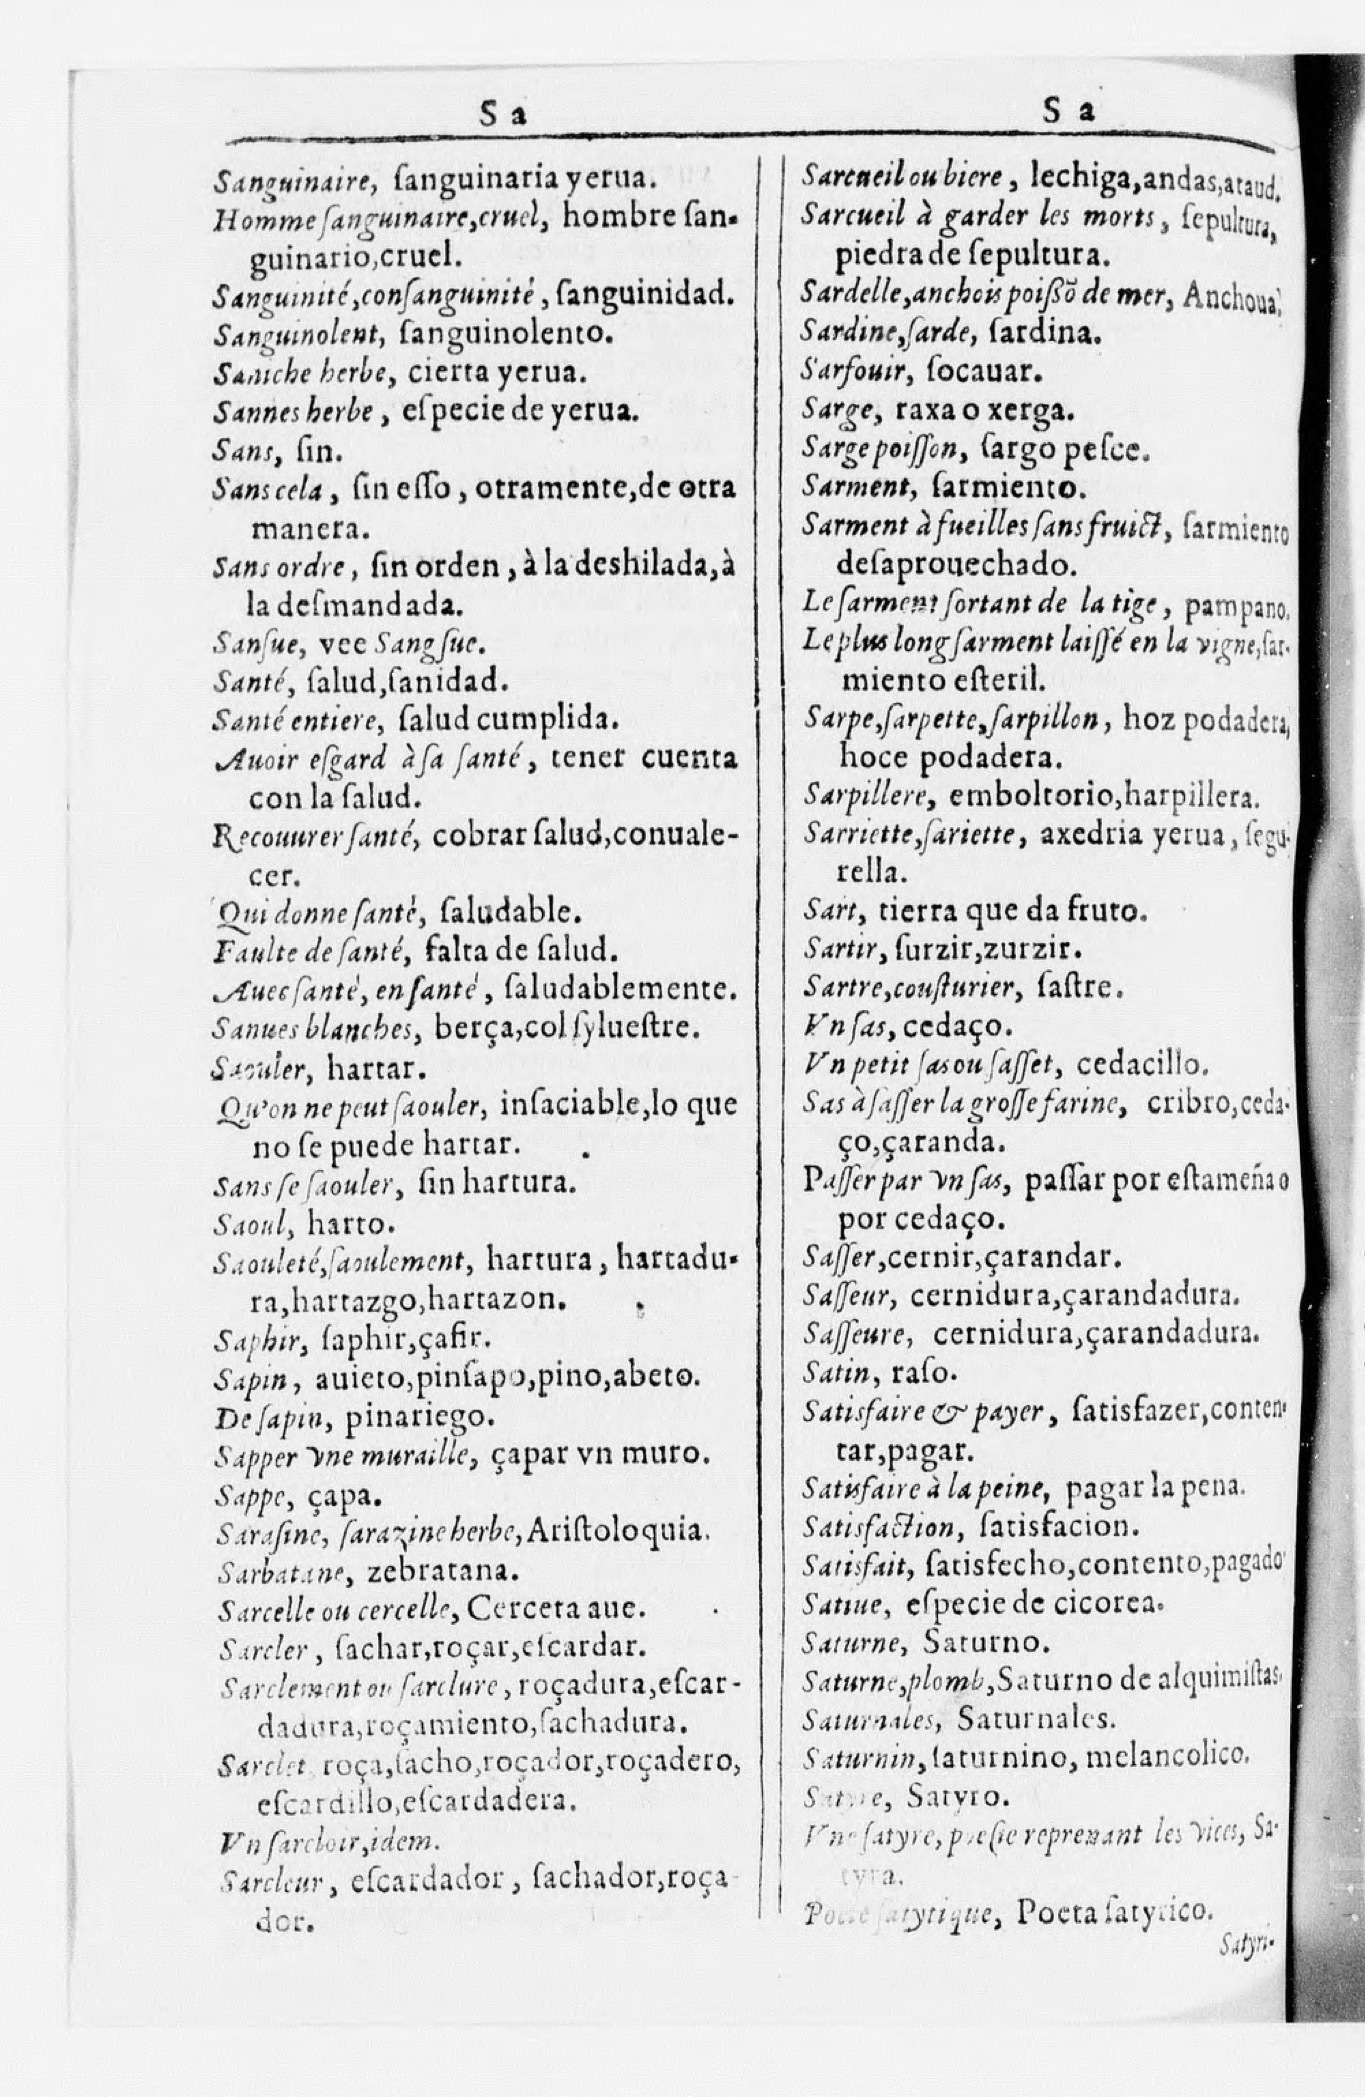 S a
Sanguinaire, ſanguinaria yerua.
Homme ſanguinaire,cruel, hombre ſan-
guinario,cruel.
Sanguinité,conſanguinité, ſanguinidad.
Sanguinolent, ſanguinolento.
Saniche herbe, cierta yerua.
Sannes herbe, eſpecie de yerua.
Sans, ſin.
Sans cela, ſin eſſo, otramente,de otra
manera.
Sans ordre, ſin orden, à la deshilada,à
la deſmandada.
Sanſue, vee Sangſue.
Santé, ſalud,ſanidad.
Santé entiere, ſalud cumplida.
Auoir eſgard à ſa ſanté, tener cuenta
con la ſalud.
Recouurer ſanté, cobrar ſalud,conuale-
cer.
Qui donne ſanté, ſaludable.
Faulte de ſanté, falta de ſalud.
Auec ſanté, en ſanté, ſaludablemente.
Sanues blanches, berça,col ſylueſtre.
Saouler, hartar.
Qu'on ne peut ſaouler, inſaciable,lo que
no ſe puede hartar.
Sans ſe ſaouler, ſin hartura.
Saoul, harto.
Saouleté,ſaoulement, hartura, hartadu-
ra,hartazgo,hartazon.
Saphir, ſaphir,çafir.
Sapin, auieto,pinſapo,pino,abeto.
De ſapin, pinariego.
Sapper vne muraille, çapar vn muro.
Sappe, çapa.
Saraſine, ſarazine herbe, Ariſtoloquia.
Sarbatane, zebratana.
Sarcelle ou cercelle, Cerceta aue.
Sarcler, ſachar,roçar,eſcardar.
Sarclement ou ſarclure, roçadura,eſcar-
dadura,roçamiento,ſachadura.
Sarclet roça,ſacho,roçador,roçadero,
eſcardillo,eſcardadera.
Vn ſarcloir,idem.
Sarcleur, eſcardador, ſachador,roça-
dor.
S a
Sarcueil ou biere, lechiga,andas,ataud.
Sarcueil à garder les morts, ſepultura,
piedra de ſepultura.
Sardelle,anchois poiſſõ de mer, Anchoua.
Sardine,ſarde, ſardina.
Sarfouir, ſocauar.
Sarge, raxa o xerga.
Sarge poiſſon, ſargo peſce.
Sarment, ſarmiento.
Sarment à fueilles ſans fruict, ſarmiento
deſaprouechado.
Le ſarment ſortant de la tige, pampano.
Le plus long ſarment laiſſé en la vigne,ſar-
miento eſteril.
Sarpe,ſarpette,ſarpillon, hoz podadera,
hoce podadera.
Sarpillere, emboltorio,harpillera.
Sarriette,ſariette, axedria yerua, ſegu-
rella.
Sart, tierra que da fruto.
Sartir, ſurzir,zurzir.
Sartre,couſturier, ſaſtre.
Vn ſas, cedaço.
Vn petit ſas ou ſaſſet, cedacillo.
Sas à ſaſſer la groſſe farine, cribro,ceda-
ço,çaranda.
Paſſer par vn ſas, paſſar por eſtameña o
por cedaço.
Saſſer,cernir,çarandar.
Saſſeur, cernidura,çarandadura.
Saſſeure, cernidura,çarandadura.
Satin, raſo.
Satisfaire & payer, ſatisfazer,conten-
tar,pagar.
Satisfaire à la peine, pagar la pena.
Satisfaction, ſatisfacion.
Satisfait, ſatisfecho,contento,pagado
Satiue, eſpecie de cicorea.
Saturne, Saturno.
Saturne,plomb,Saturno de alquimiſtas.
Saturnales, Saturnales.
Saturnin, ſaturnino, melancolico.
Satyre, Satyro.
Vne ſatyre, poeſie reprenant les vices, Sa-
tyra.
Poete ſatyrique, Poeta ſatyrico.
Satyri-